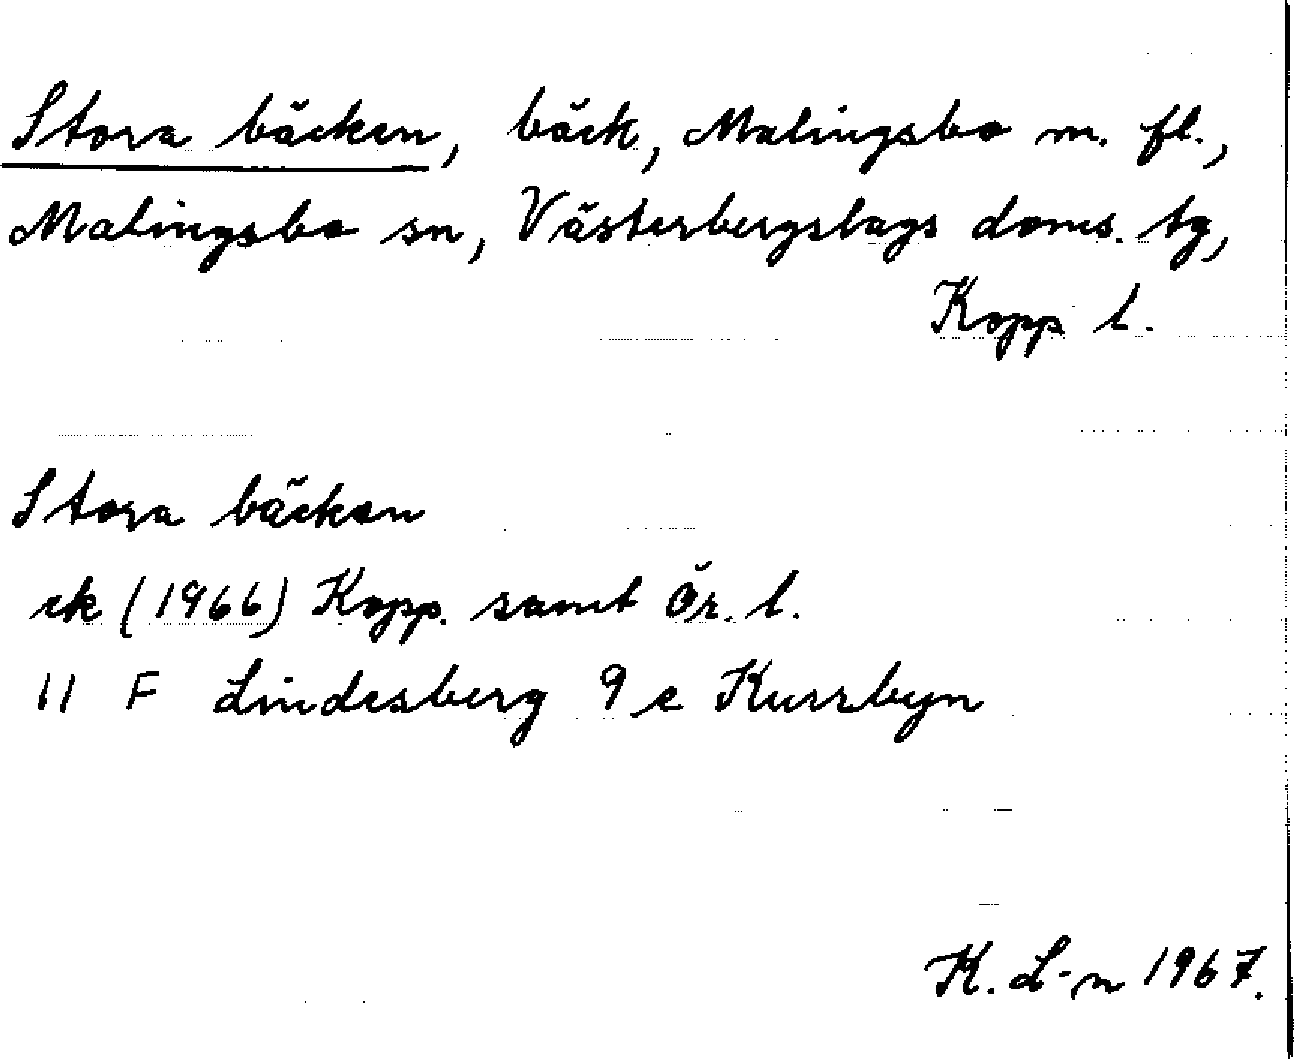 Stora bäcken, bäck, Malingsbo m. fl.,
Malingsbo sn, Västerbergslags doms. tg,
Kopp l.
Stora bäcken
ek (1966) Kopp. samt Ör. l.
11 F Lindesberg 9 e Kurrbyn
K. L-n 1967.